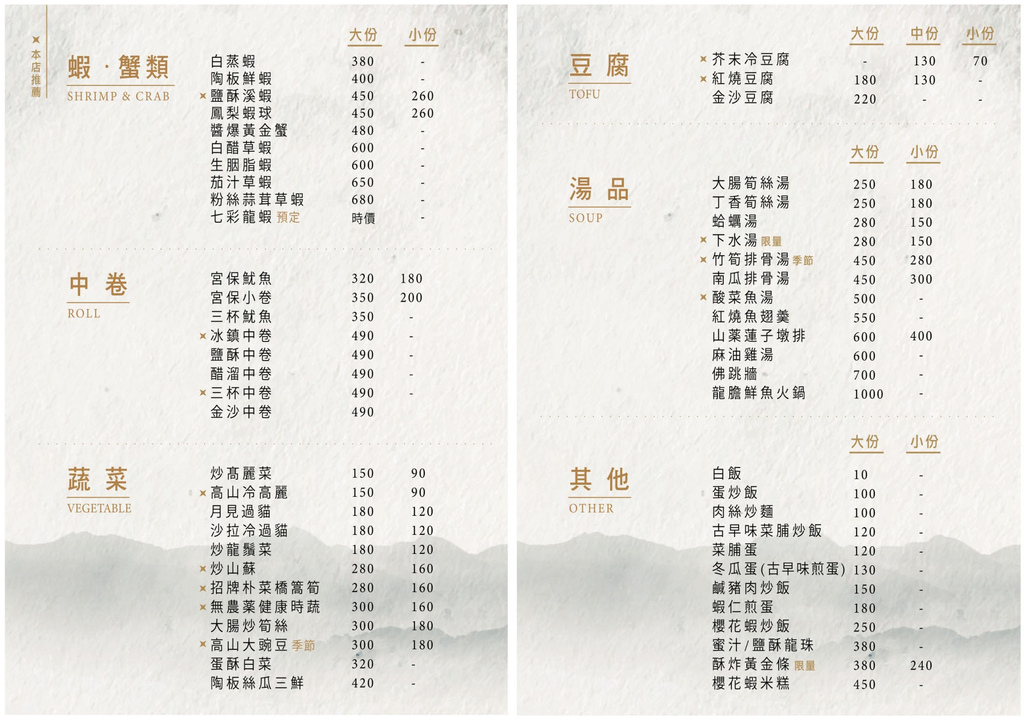 本店推薦
大份 小份
蝦·蟹類
SHRIMP & CRAB
白蒸蝦 380 -
陶板鮮蝦 400 -
鹽酥溪蝦 450 260
鳳梨蝦球 450 260
醬爆黃金蟹 480 -
白醋草蝦 600 -
生胭脂蝦 600 -
茄汁草蝦 650 -
粉絲蒜茸草蝦 680 -
七彩龍蝦 預定 時價 -
中卷
ROLL
宮保魷魚 320 180
宮保小卷 350 200
三杯魷魚 350 -
冰鎮中卷 490 -
鹽酥中卷 490 -
醋溜中卷 490 -
三杯中卷 490 -
金沙中卷 490
蔬菜
VEGETABLE
炒髙麗菜 150 90
高山冷高麗 150 90
月見過貓 180 120
沙拉冷過貓 180 120
炒龍鬚菜 180 120
炒山蘇 280 160
招牌朴菜橋篙筍 280 160
無農薬健康時蔬 300 160
大腸炒筍絲 300 180
高山大豌豆 季節 300 180
蛋酥白菜 320 -
陶板絲瓜三鮮 420 -
大份 中份 小份
豆腐
TOFU
芥末冷豆腐 - 130 70
紅燒豆腐 180 130 -
金沙豆腐 220 - -
大份 小份
湯品
SOUP
大腸筍絲湯 250 180
丁香筍絲湯 250 180
蛤蠣湯 280 150
下水湯 限量 280 150
竹筍排骨湯 季節 450 280
南瓜排骨湯 450 300
酸菜魚湯 500 -
紅燒魚翅羹 550 -
山薬蓮子燉排 600 400
麻油雞湯 600 -
佛跳牆 700 -
龍膽鮮魚火鍋 1000 -
大份 小份
其他
OTHER
白飯 10 -
蛋炒飯 100 -
肉絲炒麵 100 -
古早味菜脯炒飯 120 -
菜脯蛋 120 -
冬瓜蛋(古早味煎蛋) 130 -
鹹豬肉炒飯 150 -
蝦仁煎蛋 180 -
櫻花蝦炒飯 250 -
蜜汁/鹽酥龍珠 380 -
酥炸黃金條 限量 380 240
櫻花蝦米糕 450 -